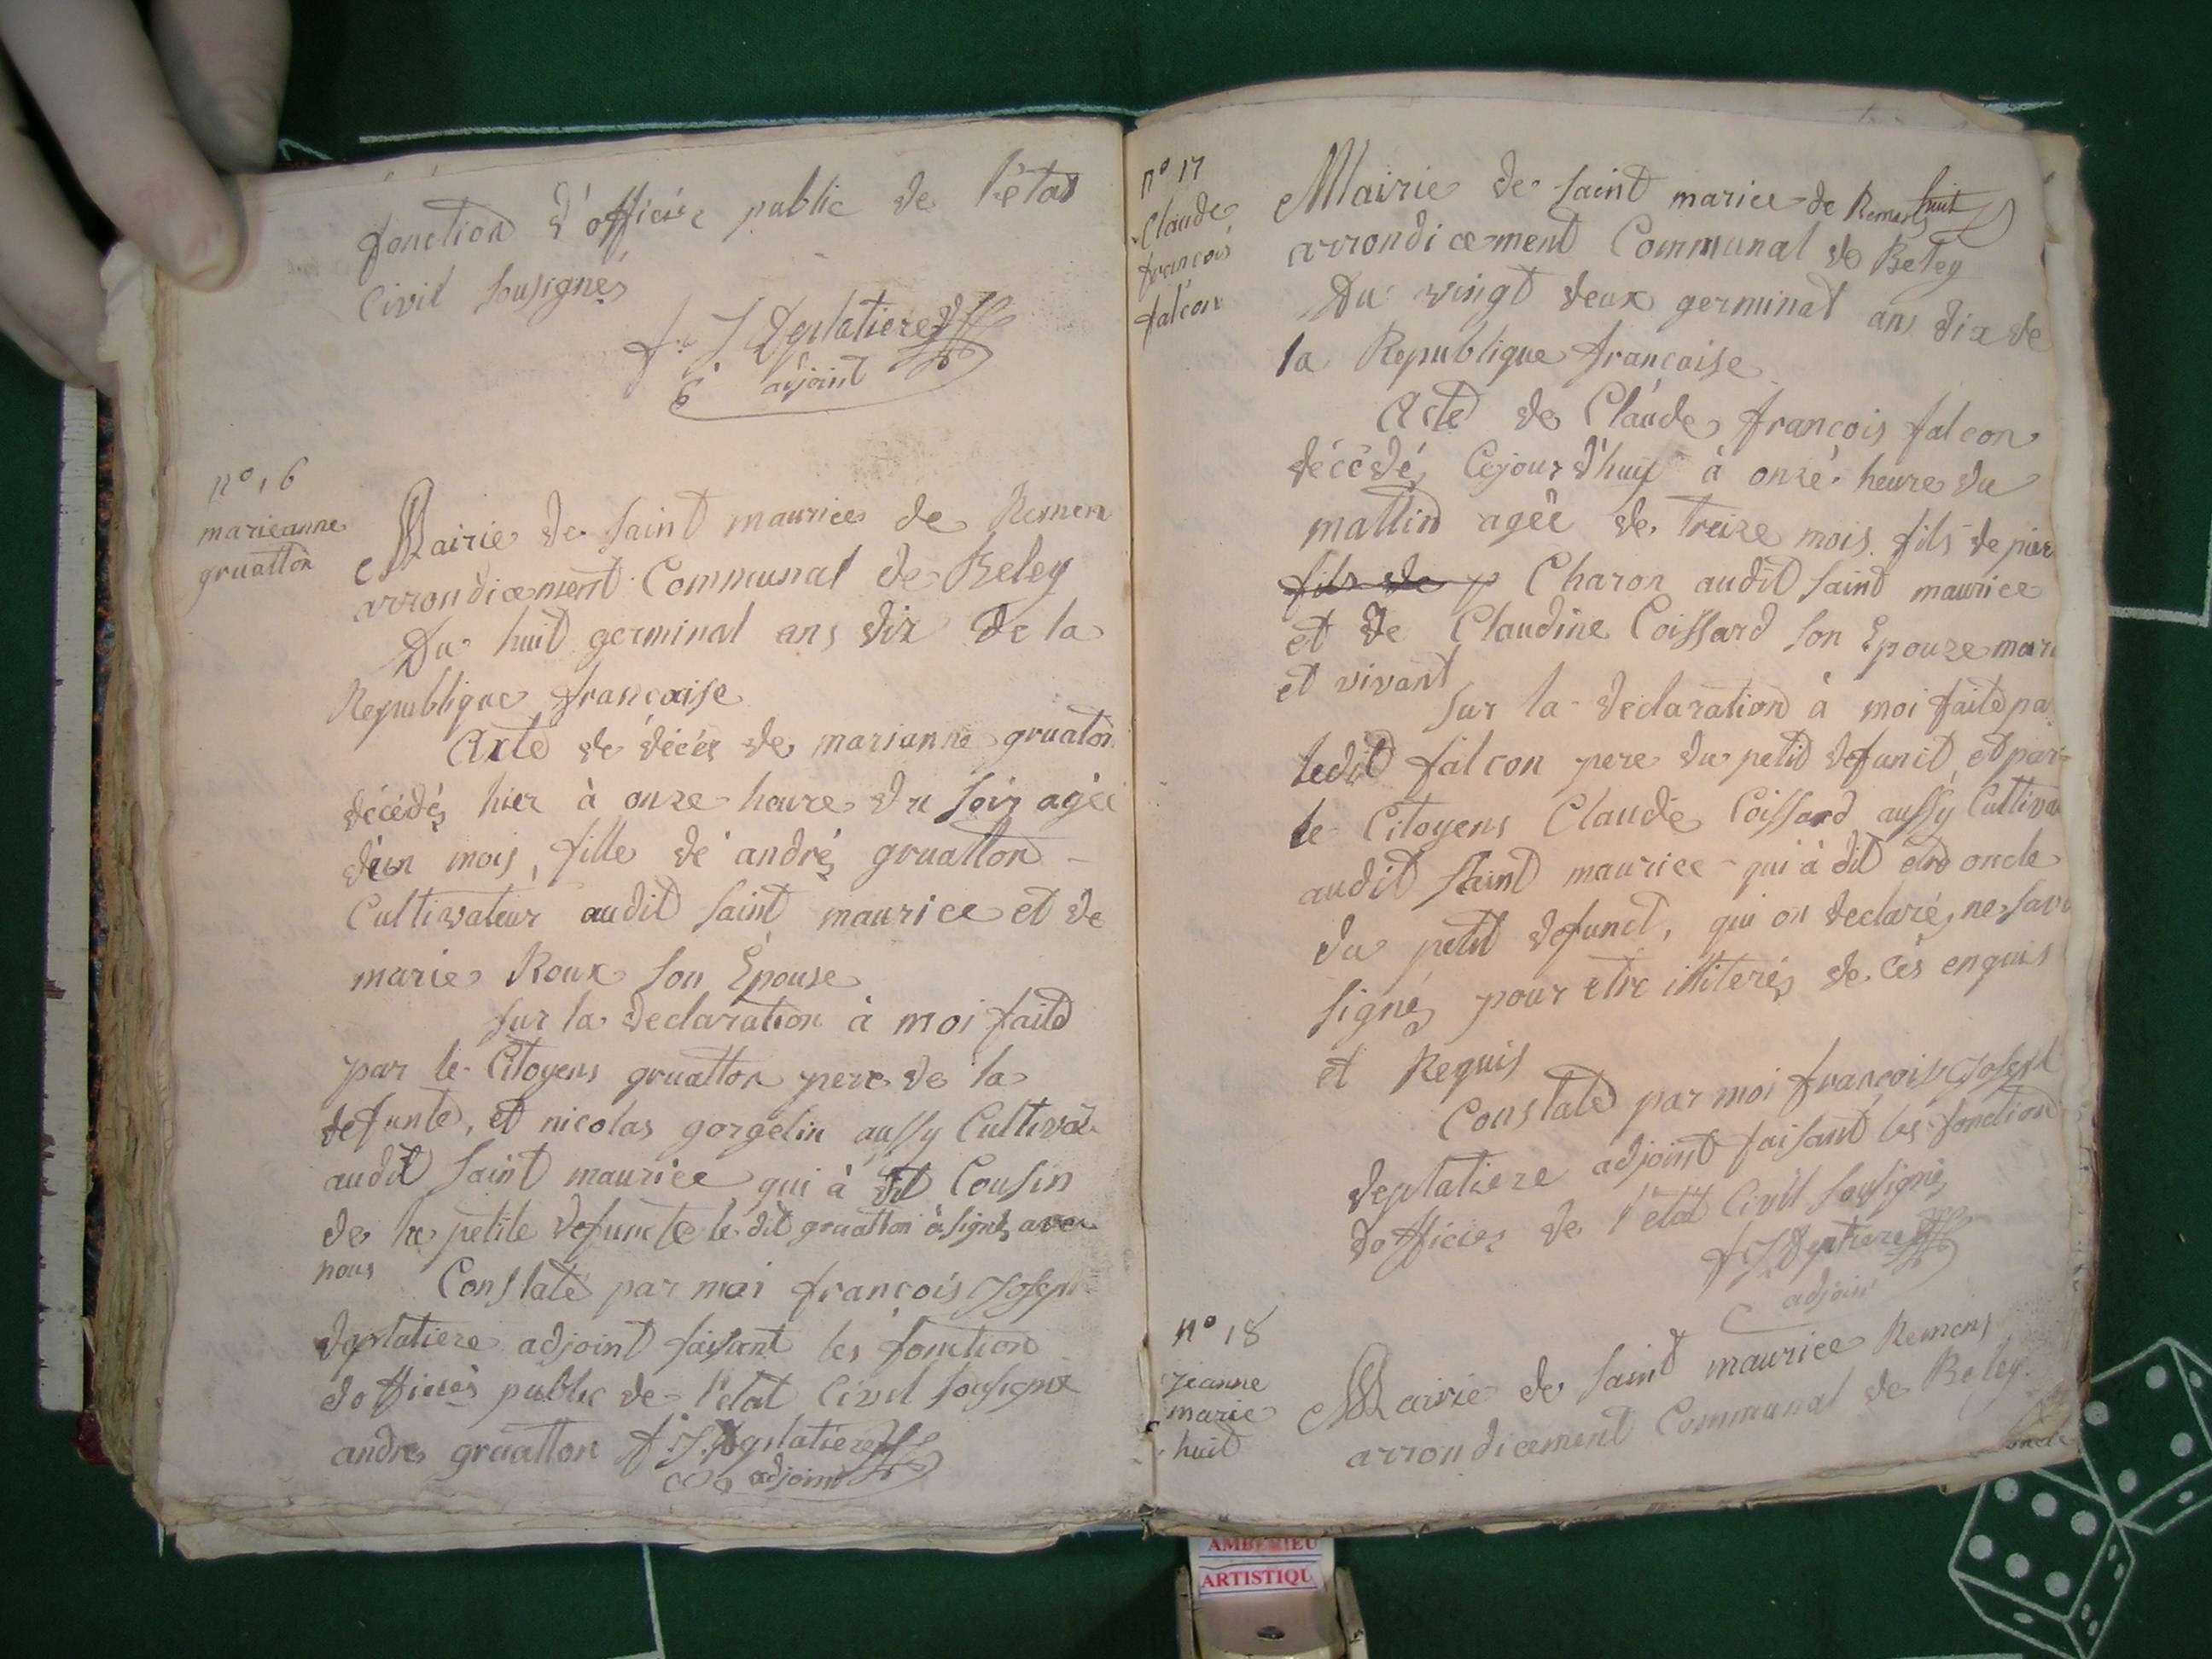 fonction d'officier public de l'état
Civil sousignés
f. J. Deplatiere
adjoint
n° 16
marieanne
gruatton
Mairie de saint maurice de Remen
arrondicement Communal de Beley
Du huit germinal ans dix de la
Republique francaise
Acte de décés de marianne gruaton
décédés hier à onze heure du soir agée
d'un mois, fille dé andrés gruatton
Cultivateur audit saint maurice et de
marie Roux son Epouse
sur la declaration à moi faite
par le Citoyens gruatton pere de la
defunte, et nicolas gorgelin aussy Cultiva
audit saint maurice qui à dit Cousin
de la petite defuncte le dit gruatton à signé avec
nous
Constaté par moi françois Joseph
deplatiere adjoint faisant les fonction
dofficiers public de l'etat Civil sousigné
andre gruatton f. J. Deplatiere
adjoint
n° 17
Claude
francois
falcon
Mairie de saint marice de Remens huit
arrondicement Communal de Beley
Du vingt deux germinal ans dix de
la Republique francaise
Acte de Claude francois falcon
décédé Cejourd'huy à onze heure du
mattin agée de treize mois fils de pier
fils de p Charon audit saint maurice
et de Claudine Coissard son Epouze mari
et vivant
sur la declaration à moi faite pa
ledit falcon pere du petit defunct et par
le Citoyens Claude Coissard aussy Cultiva
audit saint maurice qui à dit etre oncle
du petit defunct, qui on declaré ne savo
signé pour etre illiterés de ces enquis
et Requis
Constaté par moi françois Joseph
deplatiere adjoint faisant les fonction
dofficier de l'état Civil sousigné
f. J. Deplatiere
adjoint
n° 18
jeanne
marie
huit
Mairie de saint maurice Remens
arrondicement Communal de Beley
AMBERIEU
ARTISTIQU